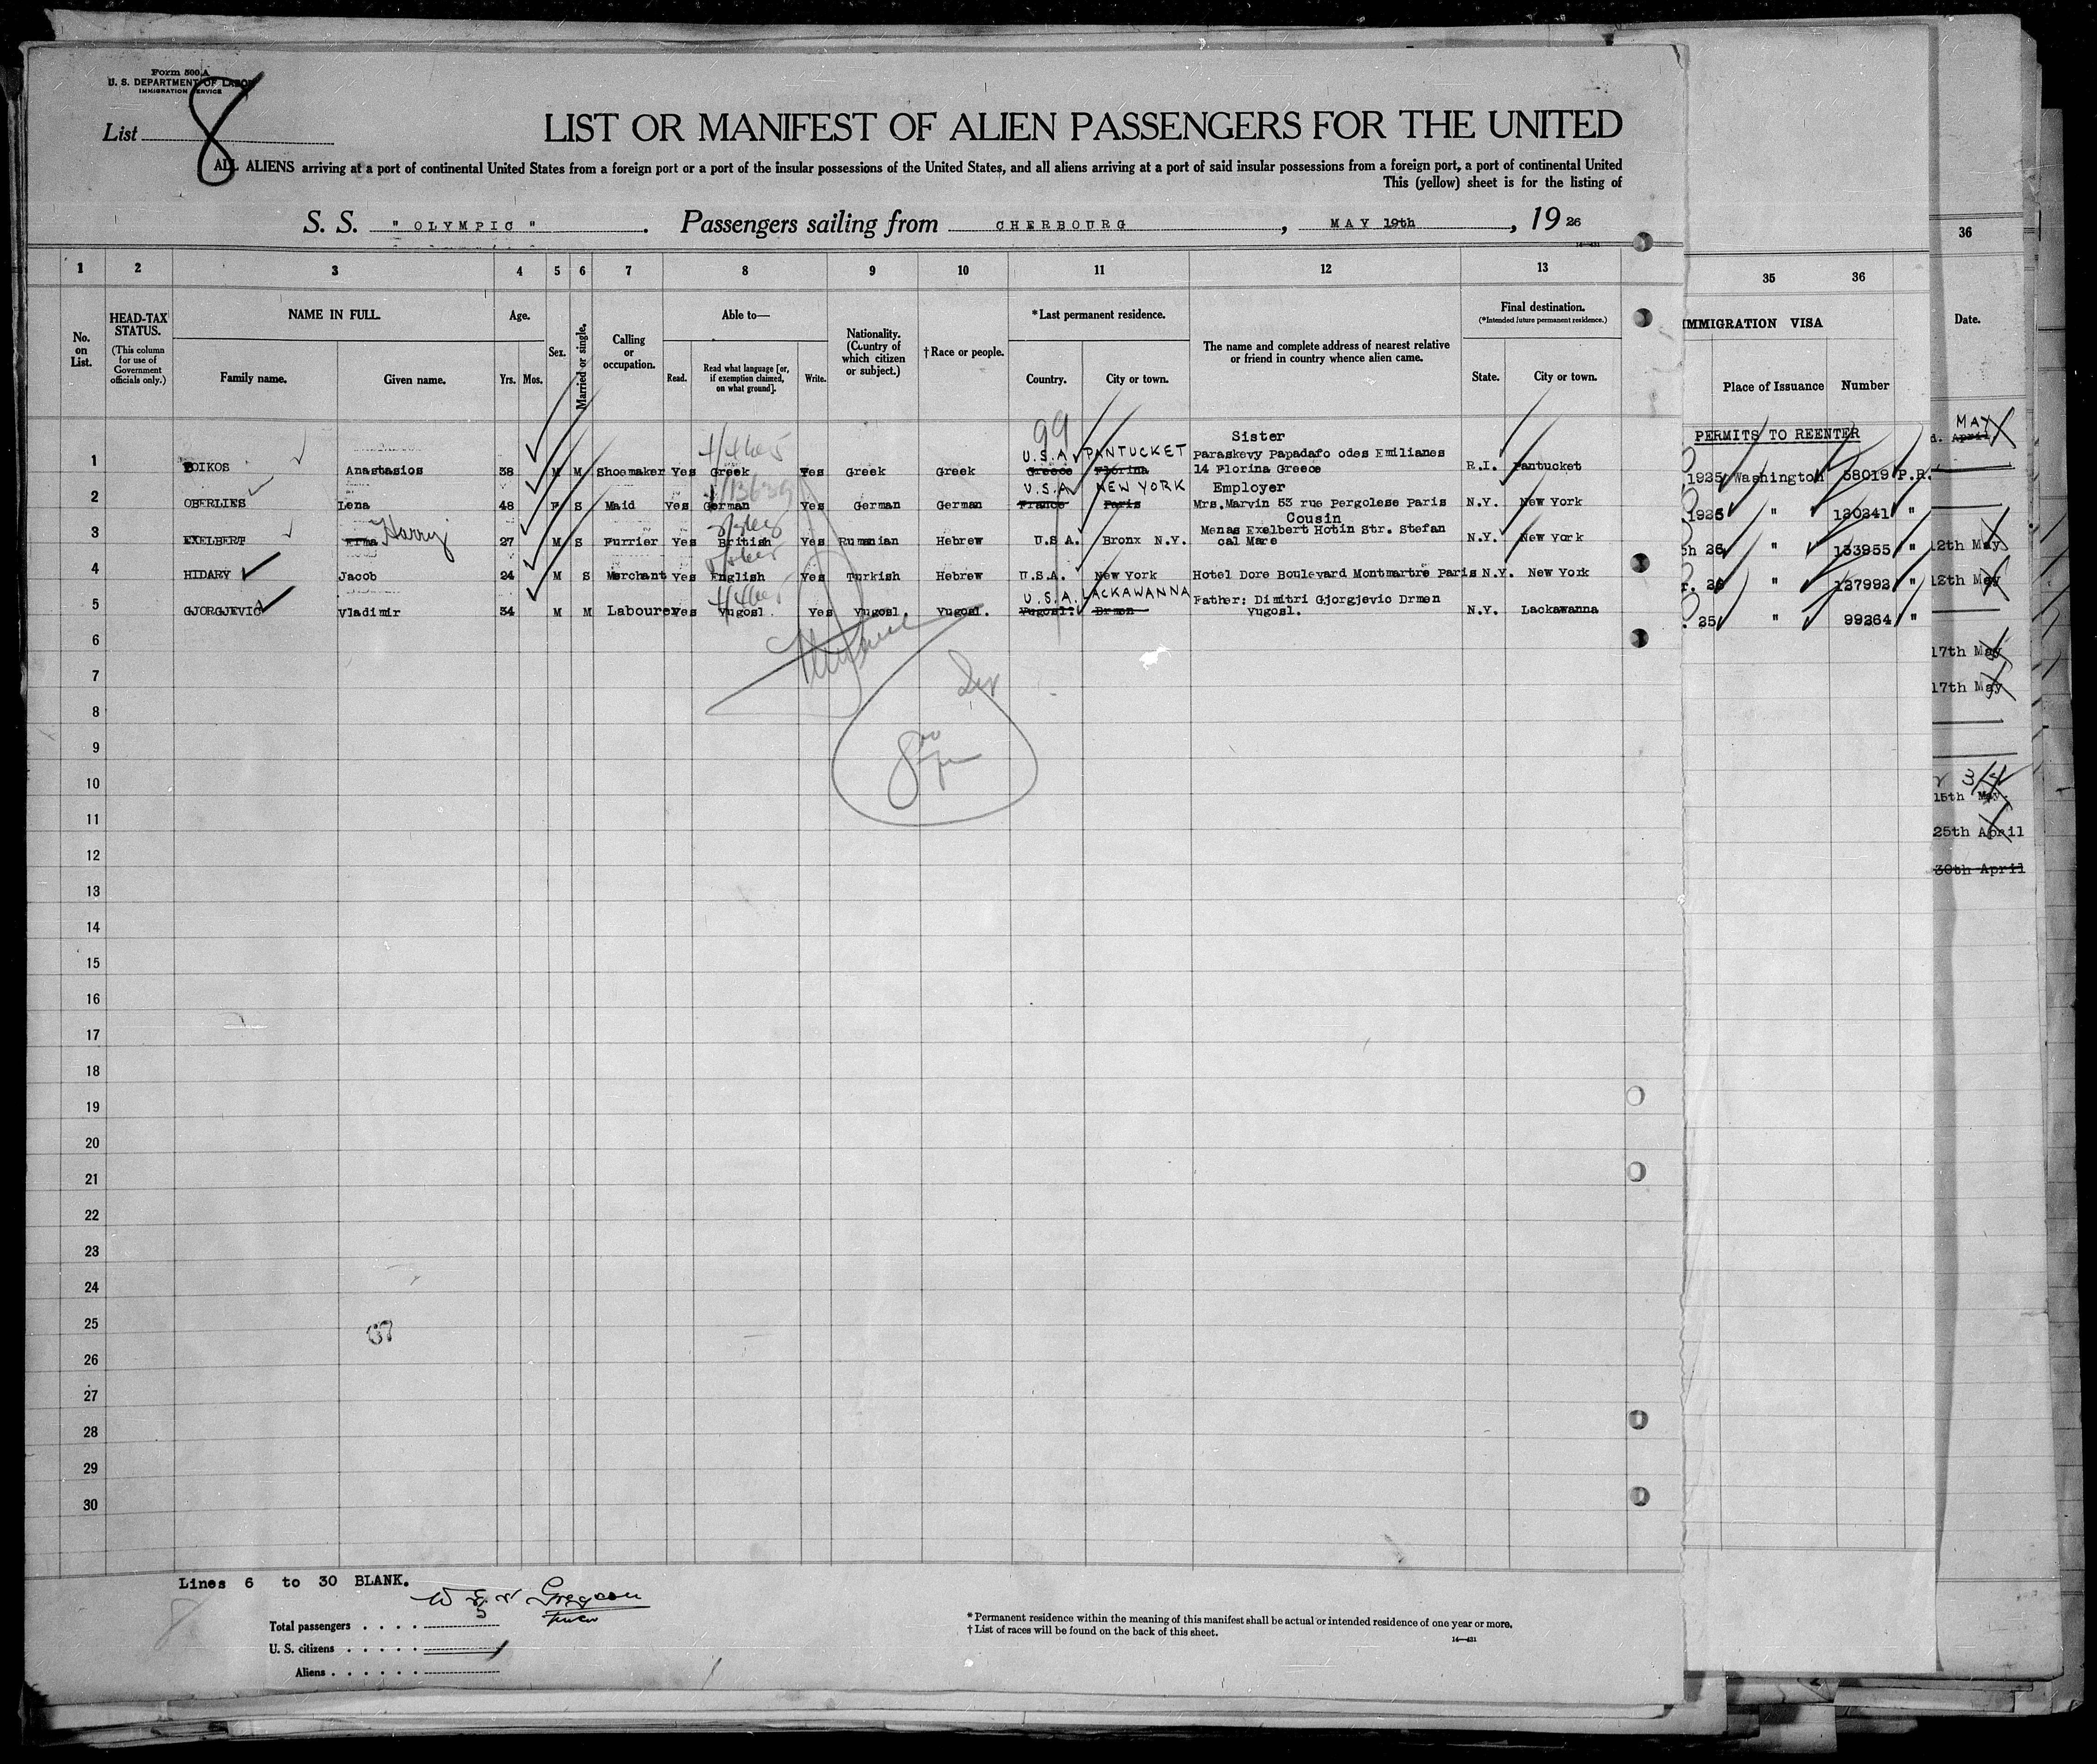 Form 500 A
U. S. DEPARTMENT OF LABOR
IMMIGRATION SERVICE
List 8
LIST OR MANIFEST OF ALIEN PASSENGERS FOR THE UNITED
ALL ALIENS arriving at a port of continental United States from a foreign port or a port of the insular possessions of the United States, and all aliens arriving at a port of said insular possessions from a foreign port, a port of continental United
This (yellow) sheet is for the listing of
S. S. "OLYMPIC". Passengers sailing from CHERBOURG, MAY 19th, 1926
1 2 3 4 5 6 7 8 9 10 11 12 13
35 36
36
No. on List.
HEAD-TAX STATUS.
(This column for use of Government officials only.)
NAME IN FULL.
Family name. Given name.
Age.
Yrs. Mos.
Sex.
Married or single.
Calling or occupation.
Able to—
Read. Read what language [or, if exemption claimed, on what ground]. Write.
Nationality. (Country of which citizen or subject.)
†Race or people.
*Last permanent residence.
Country. City or town.
The name and complete address of nearest relative or friend in country whence alien came.
Final destination.
(*Intended future permanent residence.)
State. City or town.
IMMIGRATION VISA
Place of Issuance Number
Date.
PERMITS TO REENTER
99
U.S.A. PANTUCKET Sister
Paraskevy Papadafo odes Emilianes
1 BOIKOS Anastasios 38 M M Shoemaker Yes Greek Yes Greek Greek Greece Florina 14 Florina Greece R.I. Pantucket 1925 Washington 58019 P.R.
U.S.A. NEW YORK Employer
2 OBERLIES Lena 48 F S Maid Yes German Yes German German France Paris Mrs.Marvin 53 rue Pergolese Paris N.Y. New York 1925 " 120341 "
Cousin
3 EXELBERT Erma Harry 27 M S Furrier Yes British Yes Rumanian Hebrew U.S.A. Bronx N.Y. Menas Exelbert Hotin Str. Stefan cal Mare N.Y. New York 26 " 133955 "
4 HIDARY Jacob 24 M S Merchant Yes English Yes Turkish Hebrew U.S.A. New York Hotel Dore Boulevard Montmartre Paris N.Y. New York 26 " 127992 "
U.S.A. LACKAWANNA
5 GJORGJEVIC Vladimir 34 M M Labourer Yes Yugosl. Yes Yugosl. Yugosl. Yugosl. Drmen Father: Dimitri Gjorgjevic Drmen Yugosl. N.Y. Lackawanna 25 " 99264 "
MAY
April
12th May
12th May
17th May
17th May
15th May.
25th April
30th April
6
7
8
9
10
11
12
13
14
15
16
17
18
19
20
21
22
23
24
25
26
27
28
29
30
Lines 6 to 30 BLANK.
Total passengers
U. S. citizens
Aliens
*Permanent residence within the meaning of this manifest shall be actual or intended residence of one year or more.
†List of races will be found on the back of this sheet.
14—431